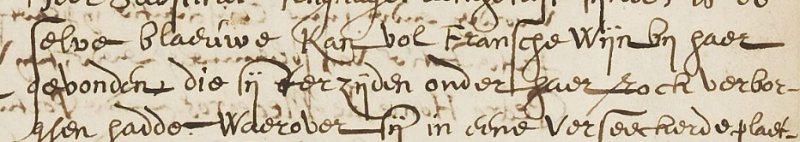 selve blaeuwe Kan vol Fransche Wijn bij haer
gevonden die sij terzijden onder haer rock verbor-
gen hadde. Waerover sij in eene verseeckerde plaet-